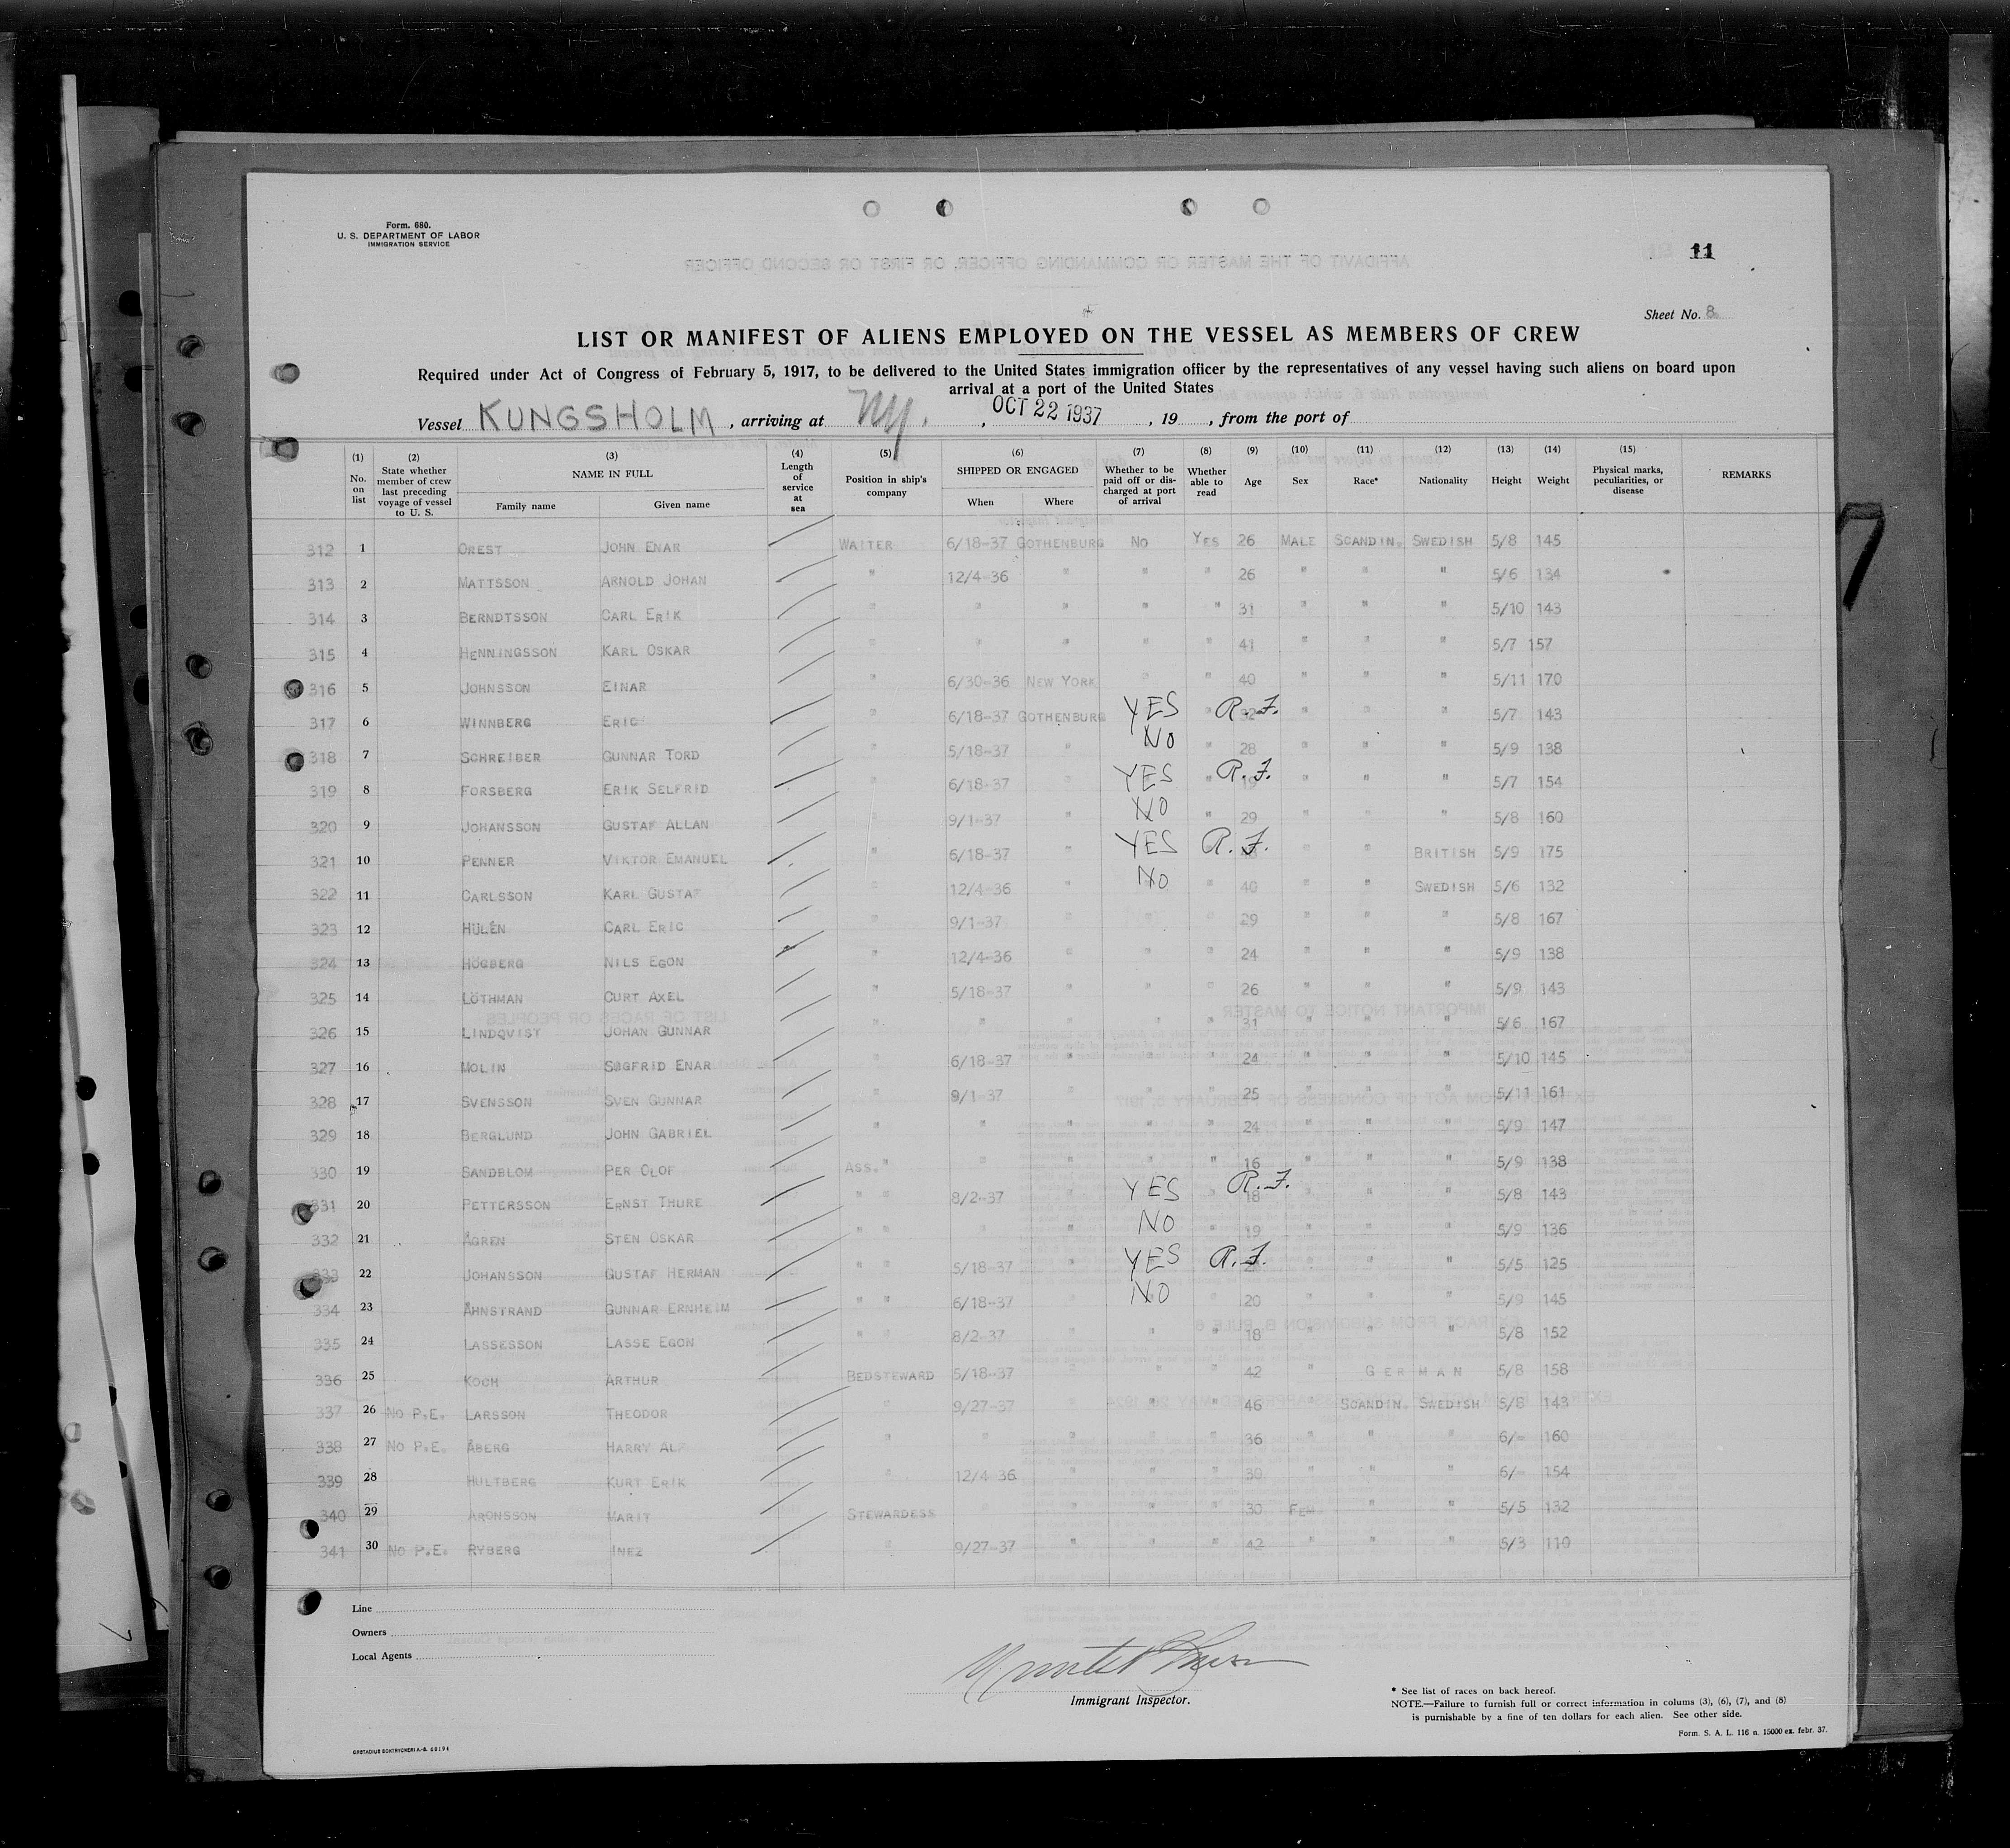 Form. 680.
U. S. DEPARTMENT OF LABOR
IMMIGRATION SERVICE
11
Sheet No. 8
LIST OR MANIFEST OF ALIENS EMPLOYED ON THE VESSEL AS MEMBERS OF CREW
Required under Act of Congress of February 5, 1917, to be delivered to the United States immigration officer by the representatives of any vessel having such aliens on board upon
arrival at a port of the United States
Vessel KUNGSHOLM, arriving at Ny., OCT 22 1937, 19 , from the port of
(1) No. on list (2) State whether member of crew last preceding voyage of vessel to U. S. (3) NAME IN FULL Family name Given name (4) Length of service at sea (5) Position in ship's company (6) SHIPPED OR ENGAGED When Where (7) Whether to be paid off or discharged at port of arrival (8) Whether able to read (9) Age (10) Sex (11) Race* (12) Nationality (13) Height (14) Weight (15) Physical marks, peculiarities, or disease REMARKS
312 1 OREST JOHN ENAR WAITER 6/18-37 GOTHENBURG NO YES 26 MALE SCANDIN. SWEDISH 5/8 145
313 2 MATTSSON ARNOLD JOHAN " 12/4-36 " " " 26 " " " 5/6 134
314 3 BERNDTSSON CARL ERIK " " " " " 31 " " " 5/10 143
315 4 HENNINGSSON KARL OSKAR " " " " " 41 " " " 5/7 157
316 5 JOHNSSON EINAR " 6/30-36 NEW YORK " " 40 " " " 5/11 170
317 6 WINNBERG ERIC " 6/18-37 GOTHENBURG YES " R.F. " " " 5/7 143
318 7 SCHREIBER GUNNAR TORD " 5/18-37 " NO " 28 " " " 5/9 138
319 8 FORSBERG ERIK SELFRID " 6/18-37 " YES " R.F. 19 " " " 5/7 154
320 9 JOHANSSON GUSTAF ALLAN " 9/1-37 " NO " 29 " " " 5/8 160
321 10 PENNER VIKTOR EMANUEL " 6/18-37 " YES R.F. " " BRITISH 5/9 175
322 11 CARLSSON KARL GUSTAF " 12/4-36 " NO " 40 " " SWEDISH 5/6 132
323 12 HULÉN CARL ERIC " 9/1-37 " " " 29 " " " 5/8 167
324 13 HÖGBERG NILS EGON " 12/4-36 " " " 24 " " " 5/9 138
325 14 LÖTHMAN CURT AXEL " 5/18-37 " " " 26 " " " 5/9 143
326 15 LINDQVIST JOHAN GUNNAR " " " " " 31 " " " 5/6 167
327 16 MOLIN SIGFRID ENAR " 6/18-37 " " " 24 " " " 5/10 145
328 17 SVENSSON SVEN GUNNAR " 9/1-37 " " " 25 " " " 5/11 161
329 18 BERGLUND JOHN GABRIEL " " " " " 24 " " " 5/9 147
330 19 SANDBLOM PER OLOF ASS. " " " " " 16 " " " 5/9 138
331 20 PETTERSSON ERNST THURE " " 8/2-37 " YES " R.F. 18 " " " 5/8 143
332 21 ÅGREN STEN OSKAR " " " " NO " 19 " " " 5/9 136
333 22 JOHANSSON GUSTAF HERMAN " " 5/18-37 " YES R.F. " " " 5/5 125
334 23 ÅHNSTRAND GUNNAR ERNHEIM " " 6/18-37 " NO " 20 " " " 5/9 145
335 24 LASSESSON LASSE EGON " " 8/2-37 " " " 18 " " " 5/8 152
336 25 KOCH ARTHUR BEDSTEWARD 5/18-37 " " " 42 " GERMAN 5/8 158
337 26 NO P.E. LARSSON THEODOR " 9/27-37 " " " 46 " SCANDIN. SWEDISH 5/8 143
338 27 NO P.E. ÅBERG HARRY ALF " " " " " 36 " " " 6/- 160
339 28 HULTBERG KURT ERIK " 12/4-36 " " " 30 " " " 6/- 154
340 29 ARONSSON MARIT STEWARDESS " " " " 30 FEM. " " 5/5 132
341 30 NO P.E. RYBERG INEZ " 9/27-37 " " " 42 " " " 5/3 110
Line
Owners
Local Agents
Immigrant Inspector.
* See list of races on back hereof.
NOTE.—Failure to furnish full or correct information in colums (3), (6), (7), and (8)
is punishable by a fine of ten dollars for each alien. See other side.
Form. S. A. L. 116 n. 15000 ex. febr. 37.
7